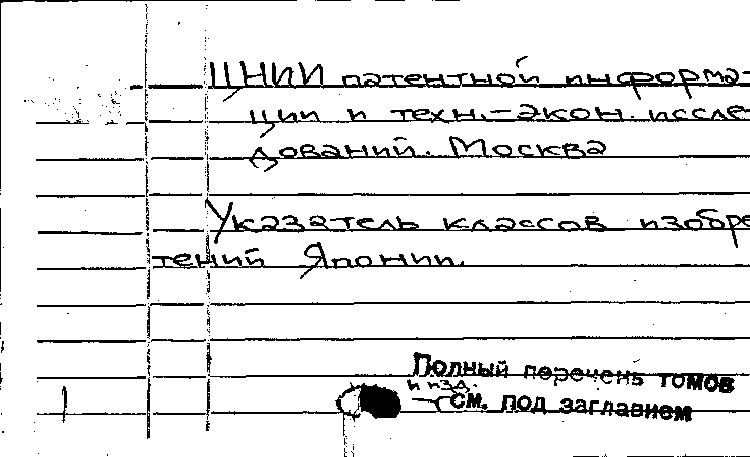 ЦНИИ патентной информа-
ции и техн.-экон. иссле-
дований. Москва
Указатель классов изобре-
тений Японии.
Полный перечень томов
и изд.
см. под заглавием